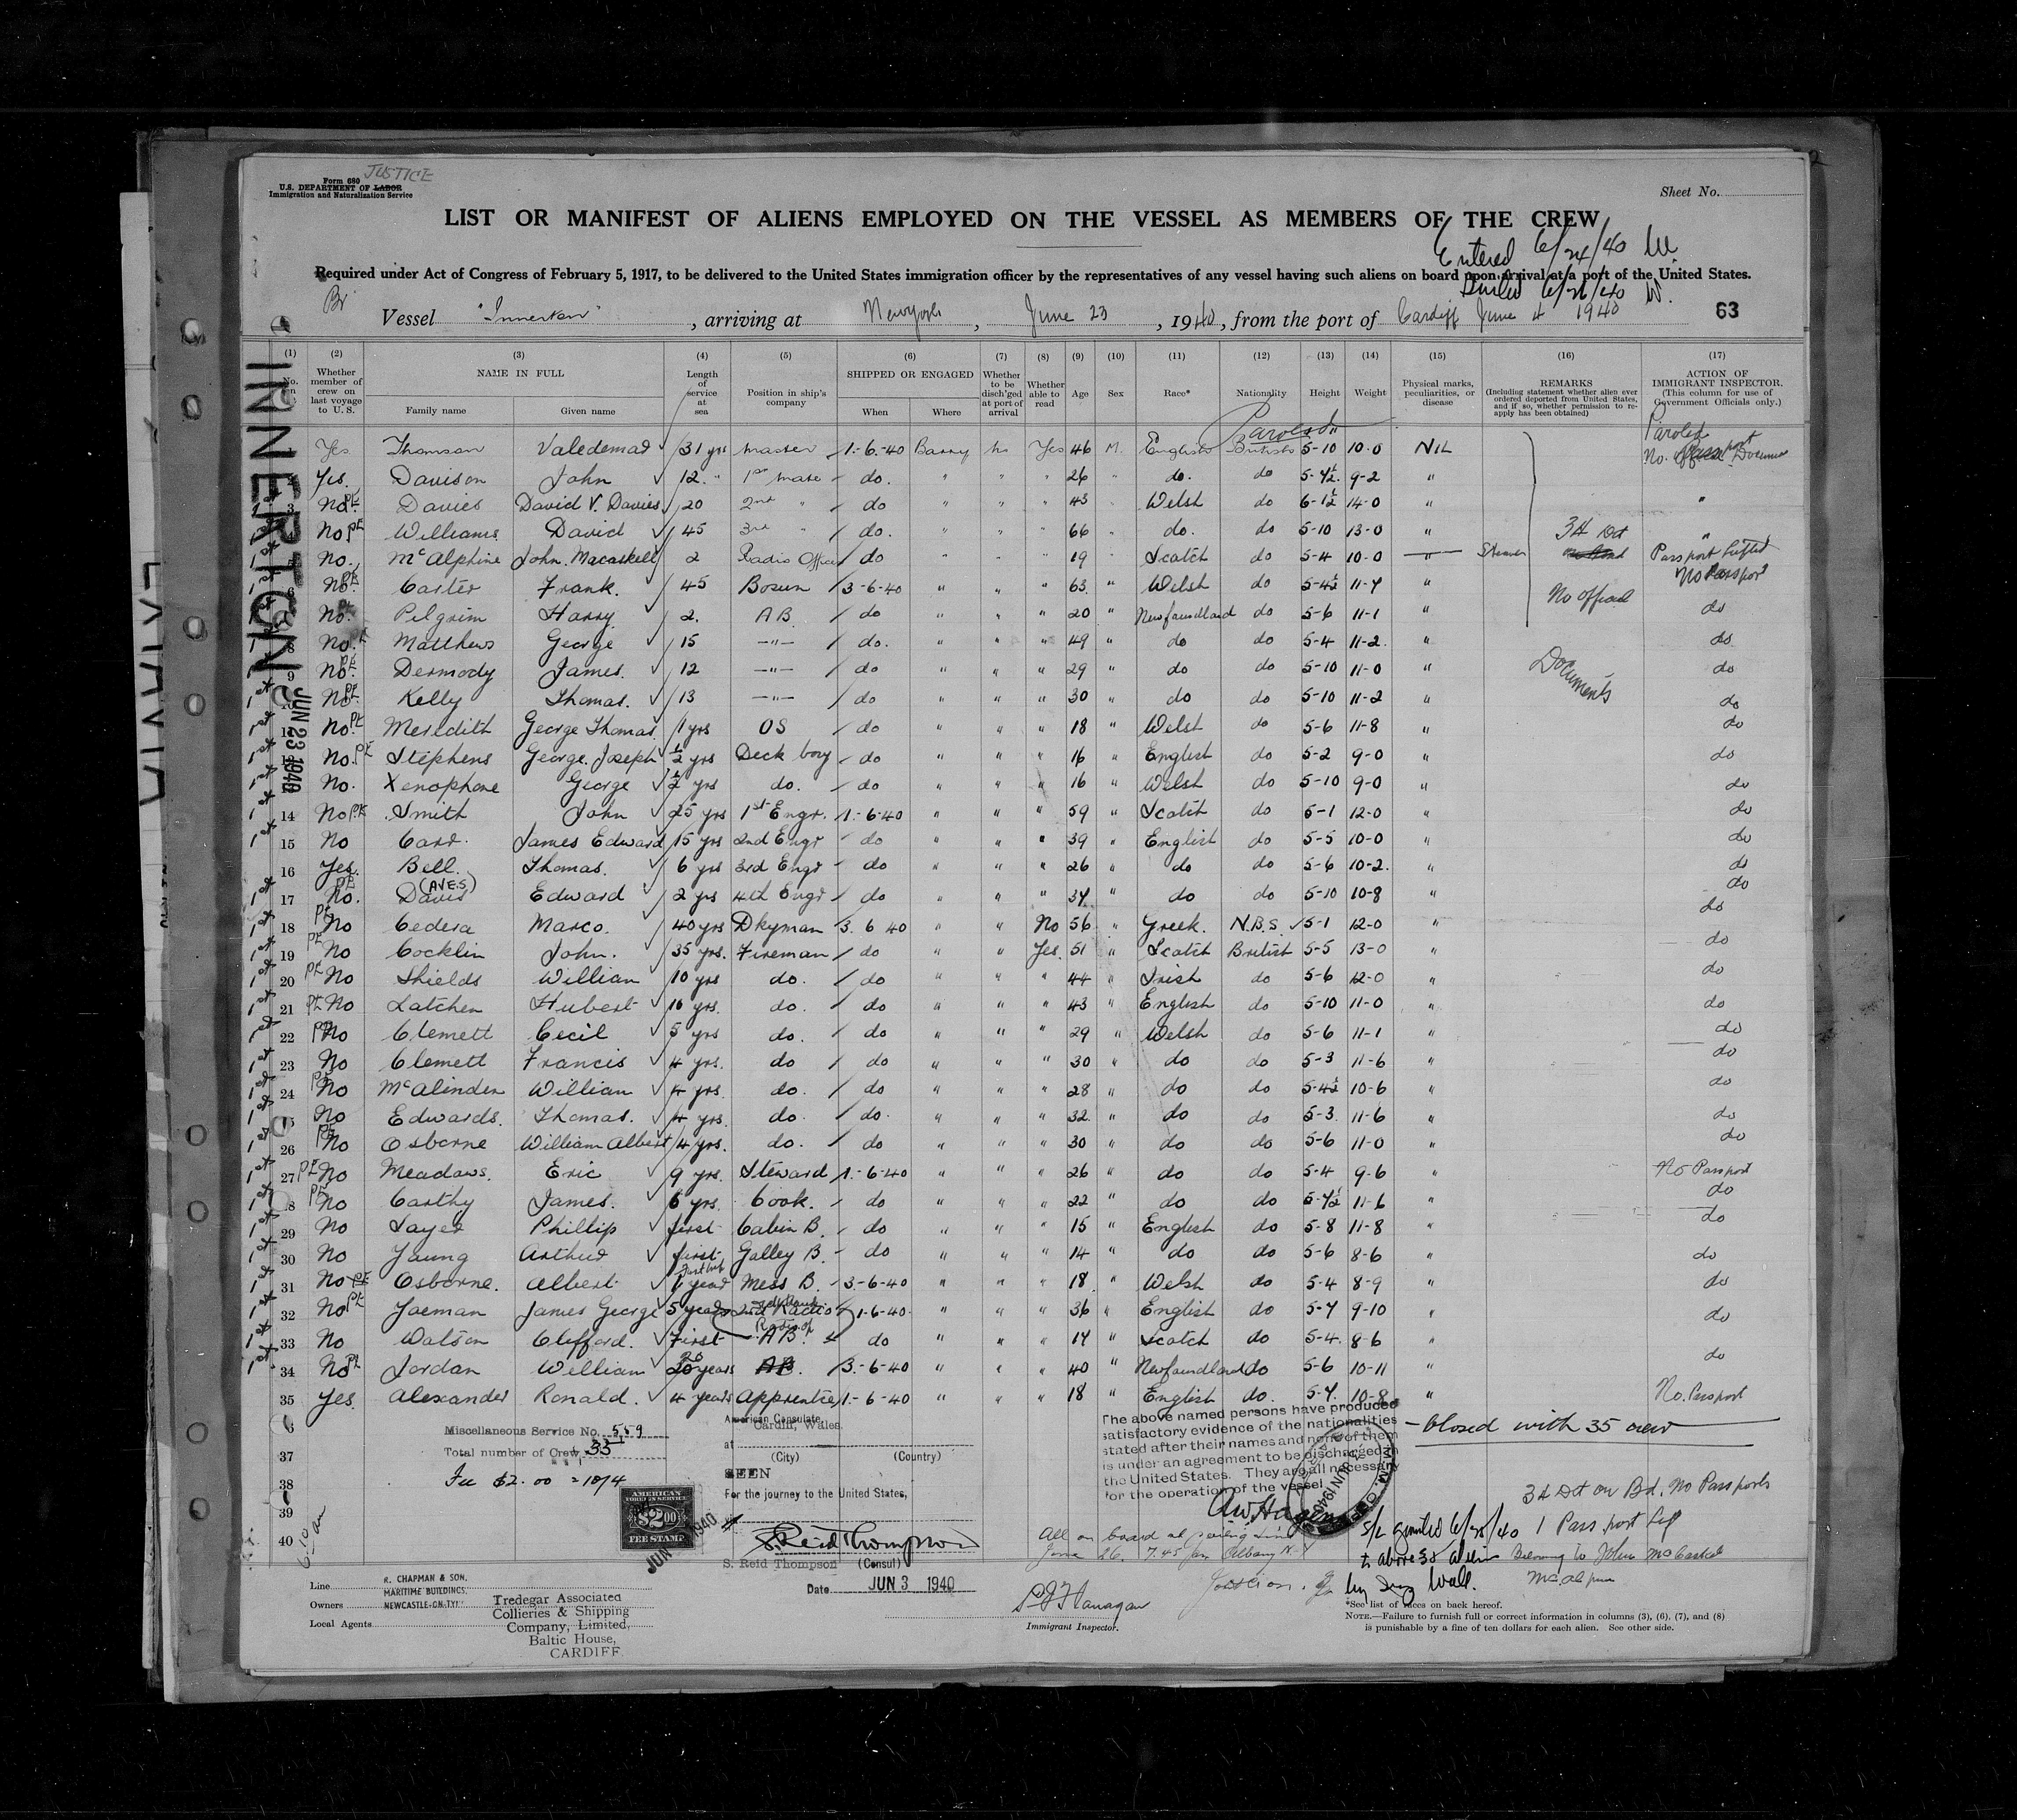 JUSTICE
Form 680
U.S. DEPARTMENT OF LABOR
Immigration and Naturalization Service
Sheet No.
LIST OR MANIFEST OF ALIENS EMPLOYED ON THE VESSEL AS MEMBERS OF THE CREW
Entered 6/24/40
Required under Act of Congress of February 5, 1917, to be delivered to the United States immigration officer by the representatives of any vessel having such aliens on board upon arrival at a port of the United States.
6/26/40
Br Vessel "Innerton", arriving at New York, June 23, 1940, from the port of Cardiff June 4 1940 63
INNERTON
JUN 23 1940
(1) (2) (3) (4) (5) (6) (7) (8) (9) (10) (11) (12) (13) (14) (15) (16) (17)
Whether member of crew on last voyage to U. S. NAME IN FULL Family name Given name Length of service at sea Position in ship's company SHIPPED OR ENGAGED When Where Whether to be disch'ged at port of arrival Whether able to read Age Sex Race* Nationality Height Weight Physical marks, peculiarities, or disease REMARKS (Including statement whether alien ever ordered deported from United States, and if so, whether permission to reapply has been obtained) ACTION OF IMMIGRANT INSPECTOR. (This column for use of Government Officials only.)
Paroled Paroled
Yes Thomson Valedemad 31 yrs master 1-6-40 Barry no Yes 46 M. English British 5-10 10-0 NIL No.
Yes. Davison John 12 " 1st mate do. " " " 26 " do. do 5-7½ 9-2 "
3 No Davies David V. Davies 20 2nd " do " " " 43 Welsh do 6-1½ 14-0 " "
No Williams David 45 3rd " do. " " " 66 " do. do 5-10 13-0 " 34 Dct "
No. McAlphine John. Macaskell 2 Radio Officer do " " " 19 " Scotch do 5-4 10-0 " Passport Lifted
6 No Carter Frank. 45 Bosun 3-6-40 " " " 63 " Welsh do 5-4½ 11-7 " No Passport
No. Pilgrim Harry 2. A B. do " " " 20 " Newfoundland do 5-6 11-1 " No official do
8 No. Matthews George 15 -"- do. " " " 49 " do do 5-4 11-2. " do
9 No. Dermody James. 12 -"- do " " " 29 " do do 5-10 11-0 " Documents do
No. Kelly Thomas. 13 -"- do " " " 30 " do do 5-10 11-2 " do
No. Meredith George Thomas 1 yrs OS do " " " 18 " Welsh do 5-6 11-8 " do
No. Stephens George. Joseph ½ yrs Deck boy do " " " 16 " English do 5-2 9-0 " do
No. Xenophone George ½ yrs do. do " " " 16 " Welsh do 5-10 9-0 " do
14 No Smith John 25 yrs 1st Engr. 1-6-40 " " " 59 " Scotch do 5-1 12-0 " do
15 No Carr. James Edward 15 yrs 2nd Engr do " " " 39 " English do 5-5 10-0 " do
16 Yes. Bell. Thomas. 6 yrs 3rd Engr do " " " 26 " do do 5-6 10-2. " do
(AVES)
17 No. Davis Edward 2 yrs 4th Engr do " " " 34 " do do 5-10 10-8 " do
18 No Cedera Marco. 40 yrs Dkyman 3. 6 40 " " No 56 " Greek. N.B.S. 5-1 12-0 " do
19 No Cocklin John. 35 yrs. Fireman do " " Yes. 51 " Scotch British 5-5 13-0 " do
20 No Shields William 10 yrs do. do " " " 44 " Irish do 5-6 12-0 " do
21 No Latchem Hubert 16 yrs do. do " " " 43 " English do 5-10 11-0 " do
22 No Clemett Cecil 5 yrs do. do " " " 29 " Welsh do 5-6 11-1 " do
23 No Clemett Francis 4 yrs. do do " " " 30 " do do 5-3 11-6 " do
24 No McAlinden William 4 yrs. do. do " " " 28 " do do 5-4½ 10-6 " do
No Edwards. Thomas. 4 yrs. do. do. " " " 32 " do do 5-3. 11-6 " do
26 No Osborne William Albert 4 yrs. do. do " " " 30 " do do 5-6 11-0 " do
27 No Meadows. Eric 9 yrs. Steward 1-6-40 " " " 26 " do do 5-4 9-6 " No Passport
No Carthy James. 6 yrs. Cook. do " " " 22 " do do 5-7½ 11-6 " do
29 No Sayer Phillip first Cabin B. do " " " 15 " English do 5-8 11-8 " do
30 No Young Arthur first Galley B. do " " " 14 " do do 5-6 8-6 " do
31 No Osborne. Albert 1 year Mess B. 3-6-40 " " " 18 " Welsh do 5-4 8-9 " do
32 No Yaeman James George 5 years 2nd Radio 1-6-40. " " " 36 " English do 5-7 9-10 " do
33 No Watson Clifford. First do " " " 17 " Scotch do 5-4. 8-6 "
34 No Jordan William 20 years AB. 3-6-40 " " " 40 " Newfoundland do 5-6 10-11 " do
35 Yes. Alexander Ronald. 4 years Apprentice 1-6-40 " " " 18 " English do. 5-7. 10-8 " No. Passport
Closed with 35 crew
37
38
39
40
Miscellaneous Service No. 559
Total number of Crew, 35
Fee $2.00 = 10/4
AMERICAN FOREIGN SERVICE
$2.00
FEE STAMP
JUN 1940
American Consulate
Cardiff, Wales.
at
(City) (Country)
SEEN
For the journey to the United States,
S. Reid Thompson
S. Reid Thompson (Consul)
Date JUN 3 1940
The above named persons have produced
satisfactory evidence of the nationalities
stated after their names and none of them
is under an agreement to be discharged in
the United States. They are all necessary
for the operation of the vessel
JUN 1940
34 Dct on Bd. No Passports
1 Passport Lif
Belonging to John McCaskel
McAlpine
S/L granted 6/25/40
to above 35 aliens
All on board at
June 26. 7.45 Albany N-Y
Line
R. CHAPMAN & SON.
MARITIME BUILDINGS.
NEWCASTLE-ON-TYNE
Owners
Local Agents
Tredegar Associated
Collieries & Shipping
Company, Limited,
Baltic House,
CARDIFF.
Immigrant Inspector.
*See list of races on back hereof.
NOTE.—Failure to furnish full or correct information in columns (3), (6), (7), and (8)
is punishable by a fine of ten dollars for each alien. See other side.